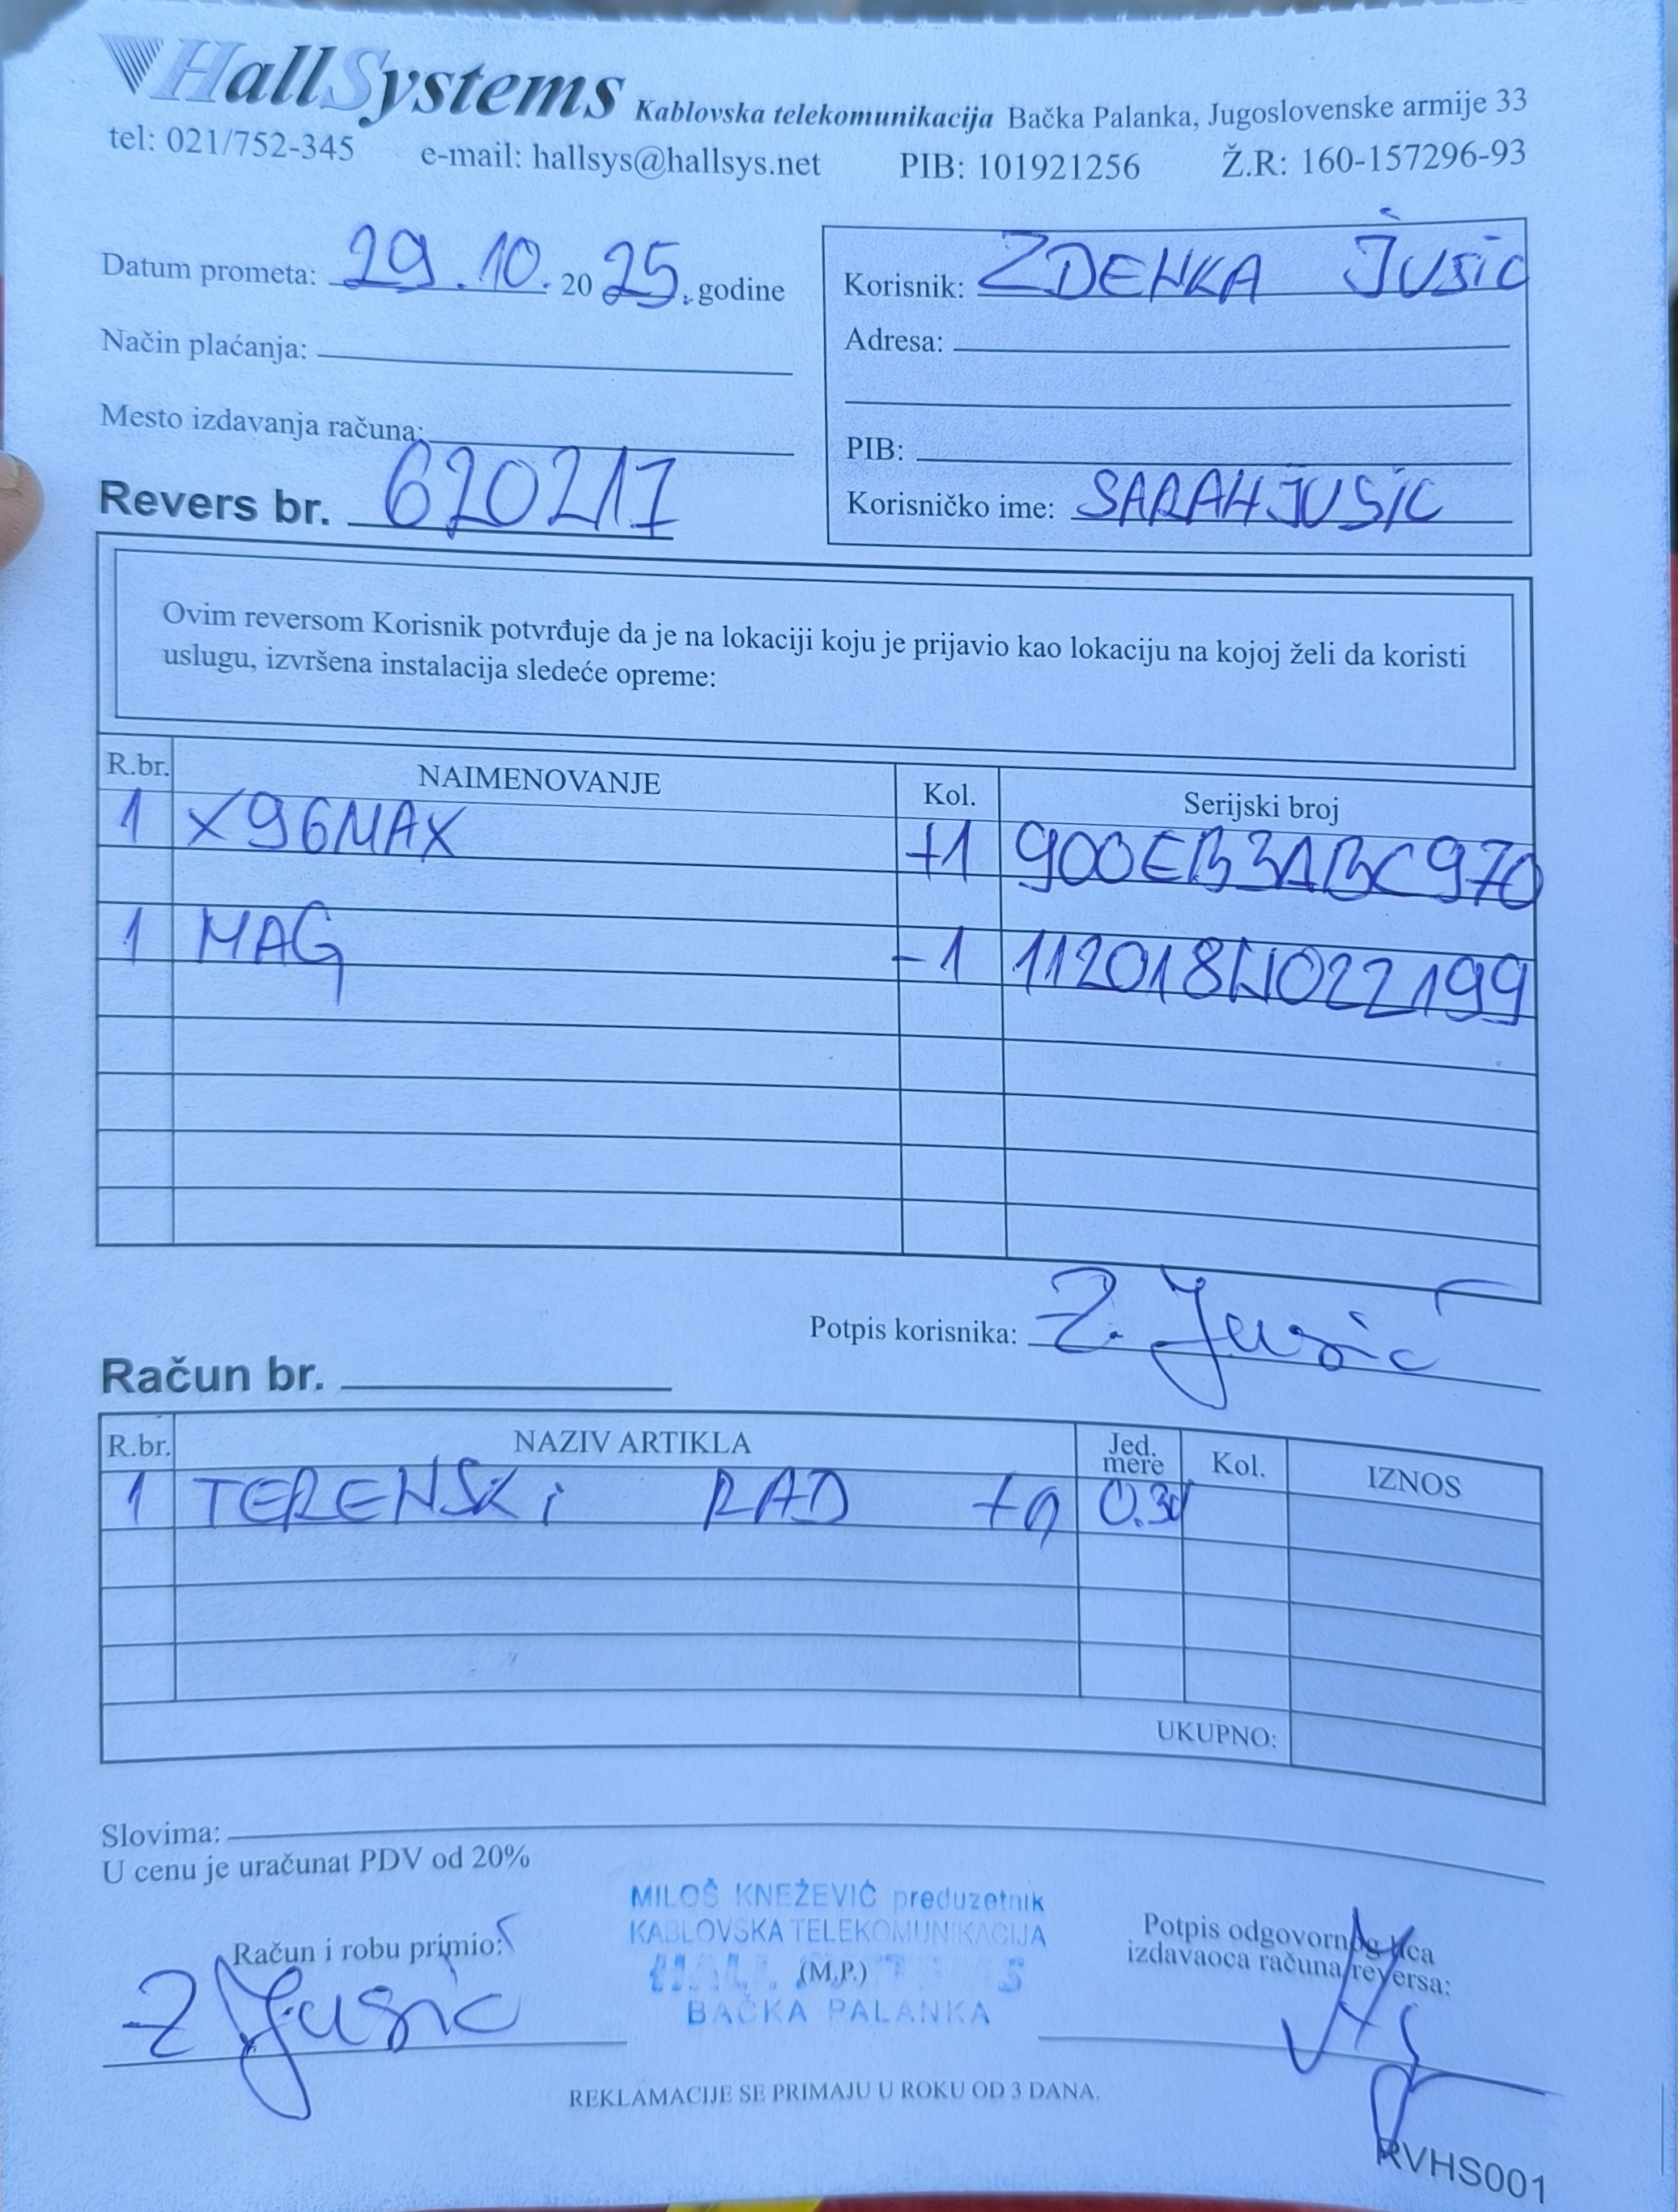 HallSystems Kablovska telekomunikacija Bačka Palanka, Jugoslovenske armije 33
tel: 021/752-345 e-mail: hallsys@hallsys.net PIB: 101921256 Ž.R: 160-157296-93
Datum prometa: 29.10. 2025. godine
Način plaćanja:
Mesto izdavanja računa:
Revers br. 620217
Korisnik: ZDENKA JUSIC
Adresa:
PIB:
Korisničko ime: SARAHJUSIC
Ovim reversom Korisnik potvrđuje da je na lokaciji koju je prijavio kao lokaciju na kojoj želi da koristi
uslugu, izvršena instalacija sledeće opreme:
R.br. NAIMENOVANJE Kol. Serijski broj
1 X96MAX +1 900EB3ABC970
1 MAG -1 112018N022199
Potpis korisnika: Z. Jusić
Račun br.
R.br. NAZIV ARTIKLA Jed. mere Kol. IZNOS
1 TERENSKI RAD 0.30
UKUPNO:
Slovima:
U cenu je uračunat PDV od 20%
MILOŠ KNEŽEVIĆ preduzetnik
KABLOVSKA TELEKOMUNIKACIJA
HALL SYSTEMS
(M.P.)
BAČKA PALANKA
Račun i robu primio:
Z Jusić
Potpis odgovornog lica
izdavaoca računa/reversa:
REKLAMACIJE SE PRIMAJU U ROKU OD 3 DANA.
RVHS001